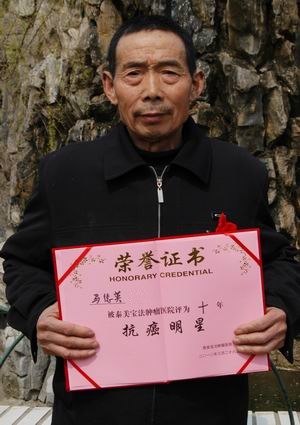 荣誉证书
HONORARY CREDENTIAL
被泰美宝法肿瘤医院评为 十 年
抗癌明星